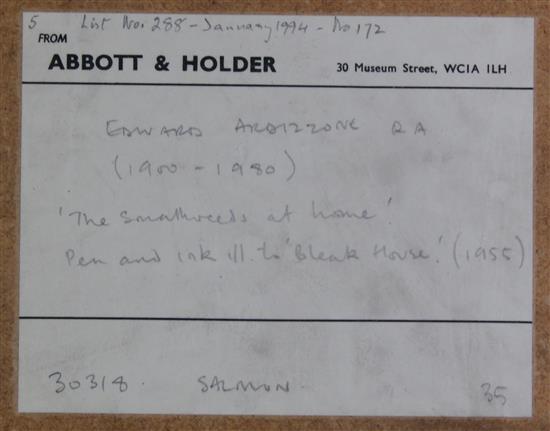 5 List No. 288 - January 1994 - No 172
FROM
ABBOTT & HOLDER 30 Museum Street, WC1A 1LH
EDWARD ARDIZZONE RA
(1900 - 1980)
'The Smallweeds at home'
Pen and ink ill. to 'Bleak House'. (1955)
30318. SALMON. 35